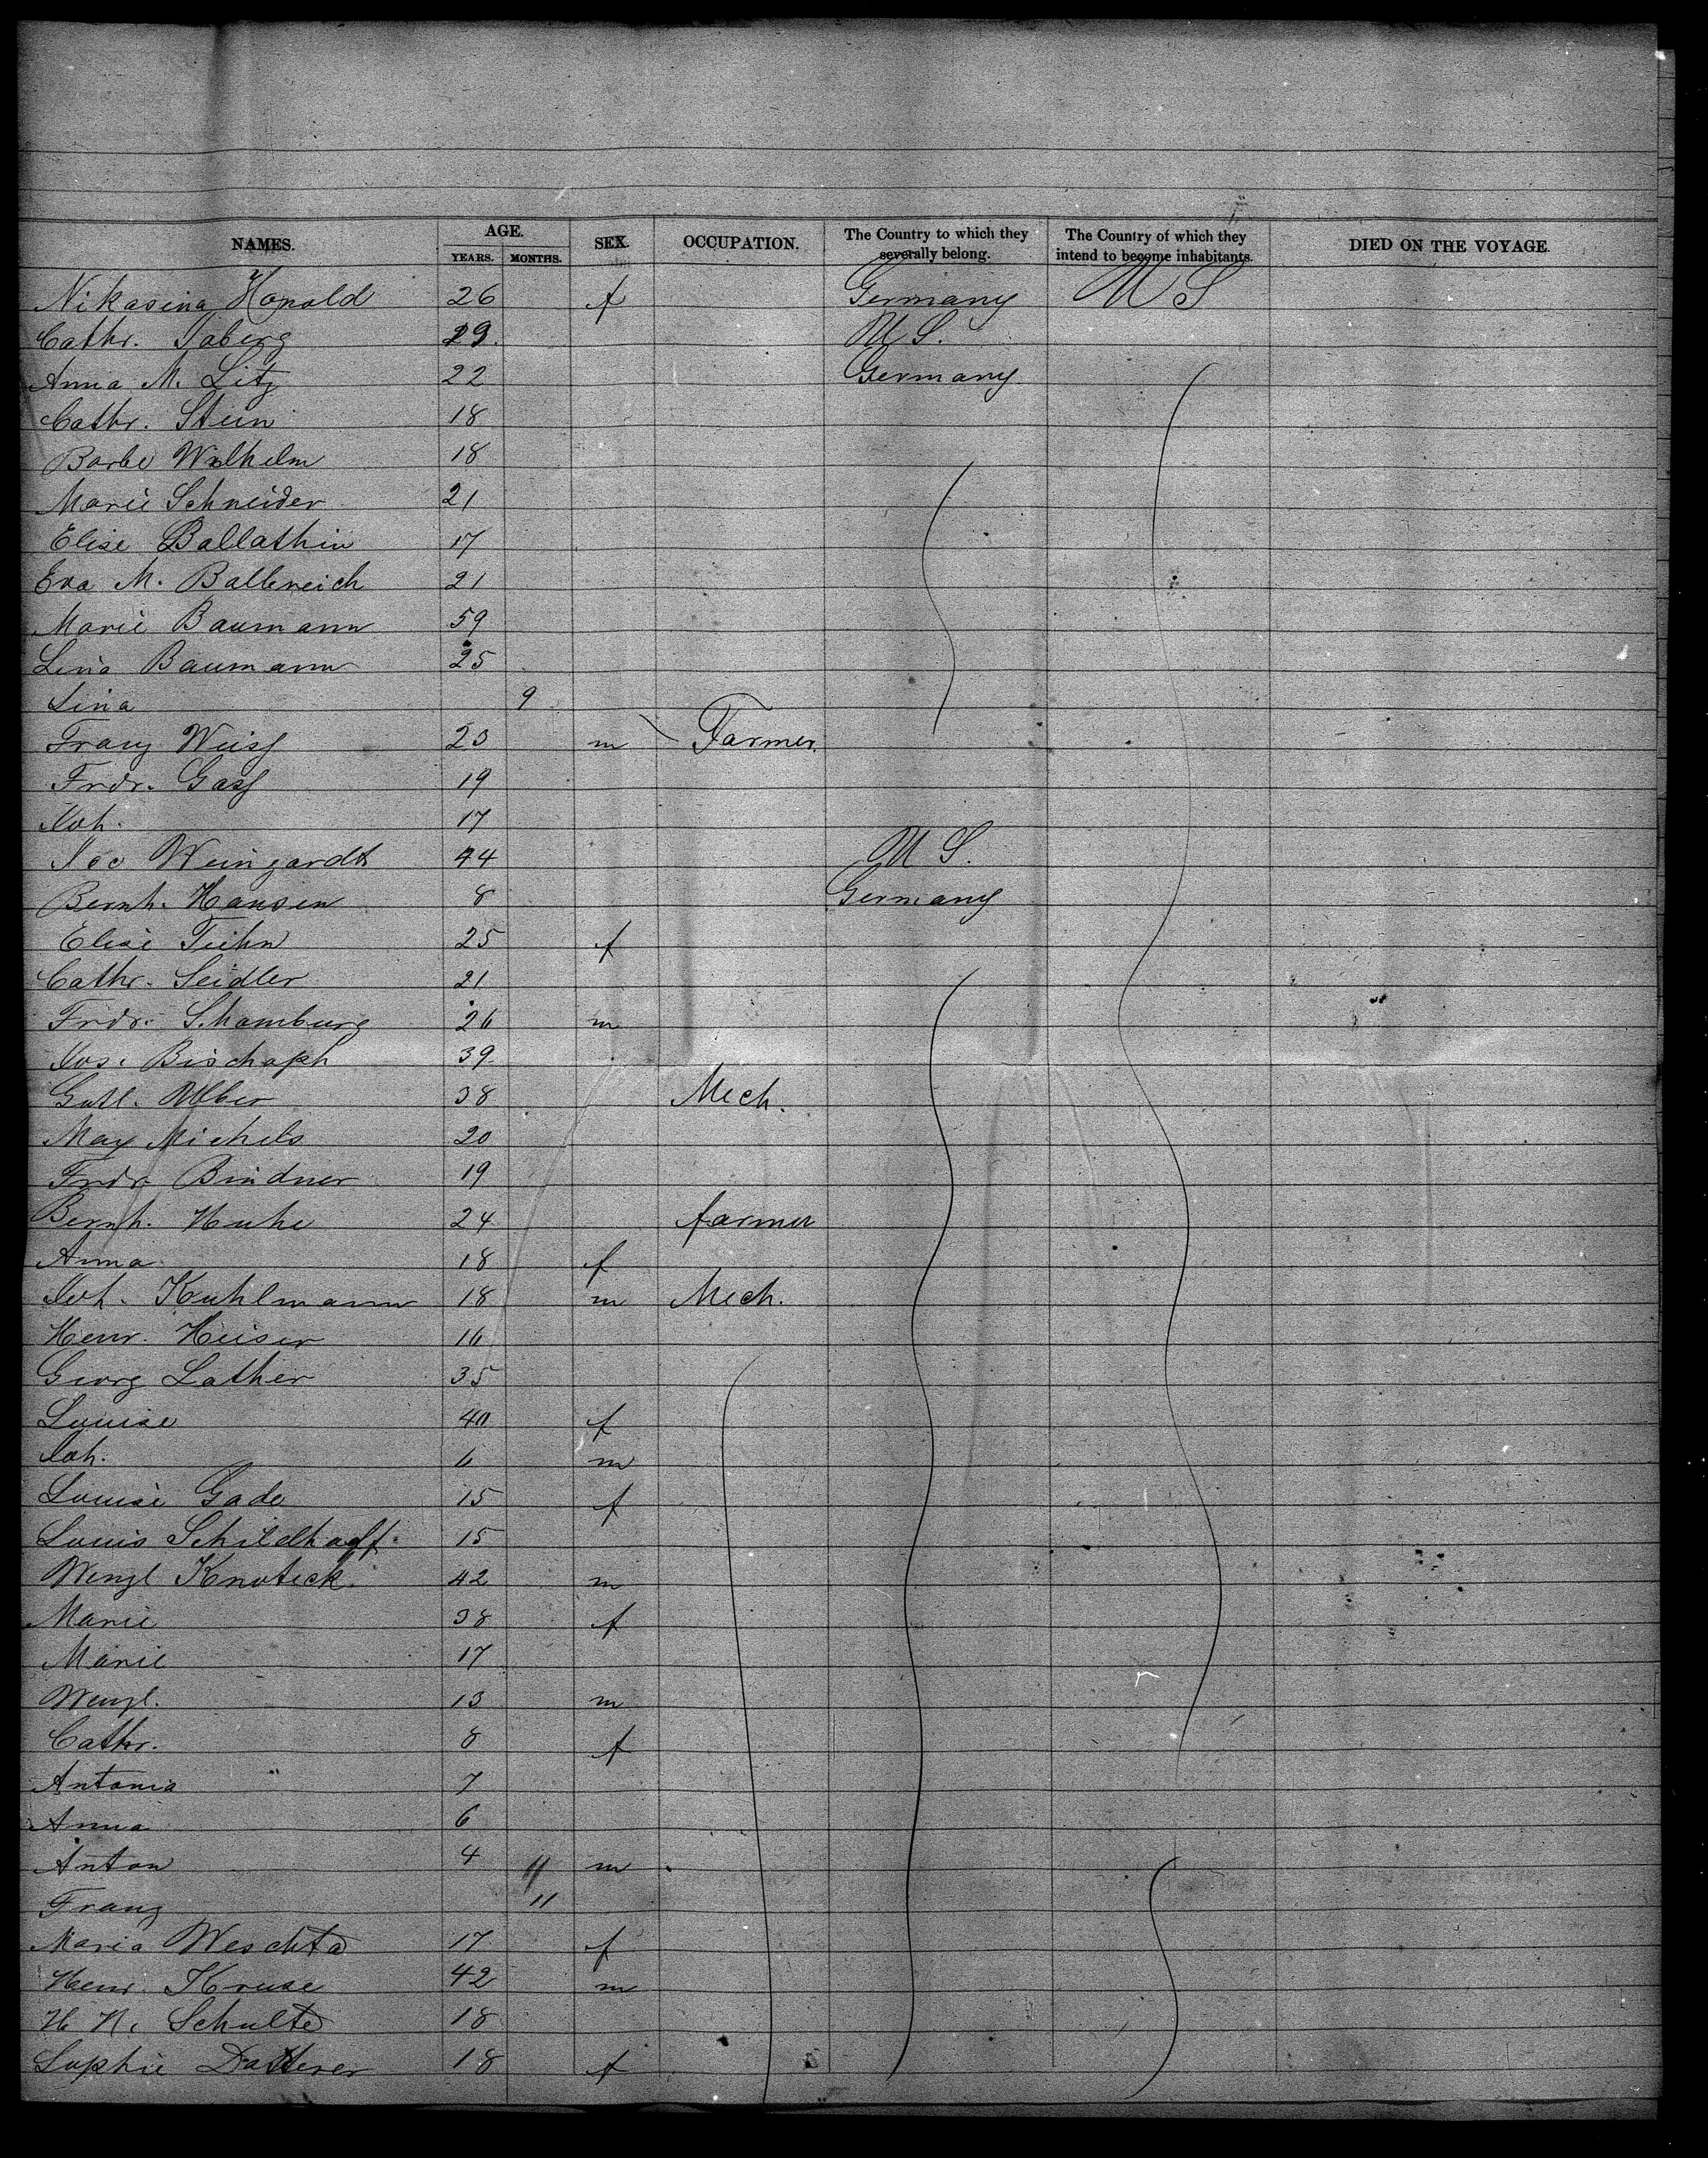 NAMES. AGE. YEARS. MONTHS. SEX. OCCUPATION. The Country to which they severally belong. The Country of which they intend to become inhabitants. DIED ON THE VOYAGE.
Nikasina Honold 26 f Germany U S
Cathr. Taberg 29 U S.
Anna M. Litz 22 Germany
Cathr. Stein 18
Barbe Wilhelm 18
Marie Schneider 21
Elise Ballathin 17
Eva M. Ballereich 21
Marie Baumann 59
Lina Baumann 25
Lina 9
Franz Weiss 23 m Farmer.
Frdr. Gass 19
Joh. 17
Jac Weingardt 44 U S.
Bernh. Hansen 8 Germany
Elise Tiehn 25 f
Cathr. Seidler 21
Frdr. Schamburg 26 m
Jos. Bischoph 39
Gottl. 38 Mech.
Max Michels 20
Frdr. Bindner 19
Bernh. Huhe 24 farmer
Anna 18 f
Joh. Kuhlmann 18 m Mech.
Henr. Heiser 16
Georg Lather 35
Louise 40 f
Joh. 6 m
Louise Gade 15 f
Louis Schildhoff 15
Wenzl Knoteck 42 m
Marie 38 f
Marie 17
Wenzl. 13 m
Cathr. 8 f
Antonia 7
Anna 6
Anton 4 m
Franz 11
Maria Weschta 17 f
Henr. Kruse 42 m
H. H. Schulte 18
Sophie Datterer 18 f